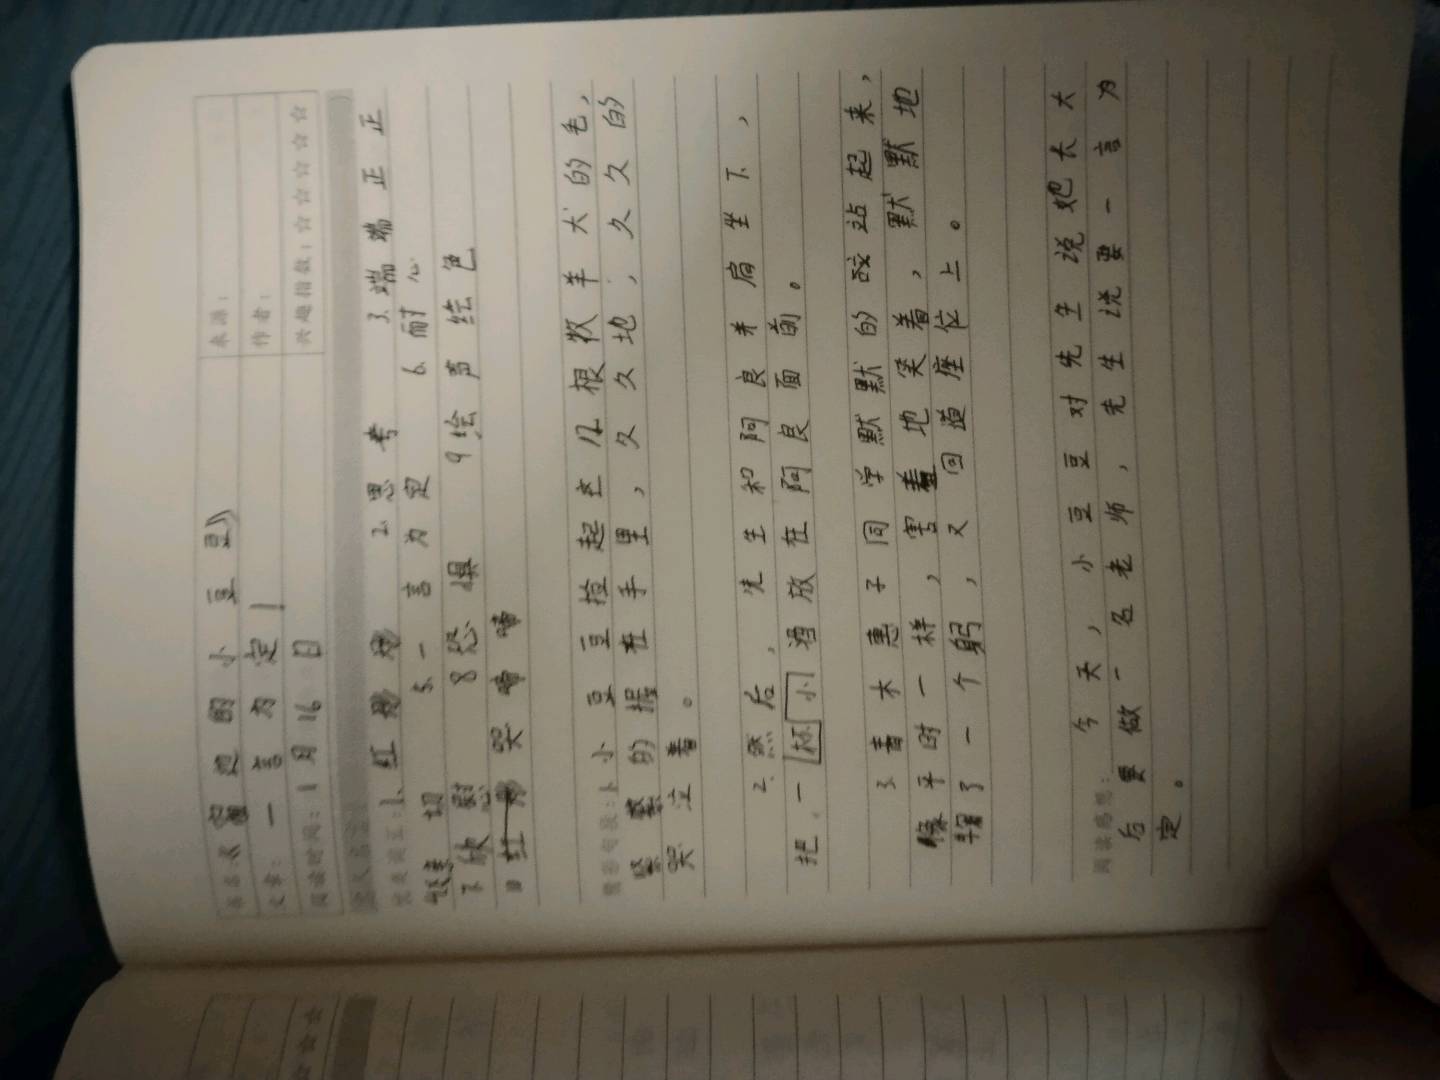 窗边的小豆豆》
来源：
文章：一言为定
作者：
阅读时间：1月16日
兴趣指数：☆☆☆☆☆
优美词汇：1、红彤彤 2、思考 3、端端正正
5、一言为定 6、耐心
7 欣慰 8 恐惧 9 绘声绘色
哭啼啼
精彩句段：1、小豆豆捡起主几根牧羊犬的毛，
紧紧的握在手里，久久地，久久的
哭泣着。
2、然后，先生和阿良并肩坐下，
把一杯小酒放在阿良面前。
3、青木惠子同学默默的站起来，
像平时一样，害羞地笑着，默默地
鞠了一个躬，又回道座位上。
阅读感想：今天，小豆豆对先生说她长大
后要做一名老师，先生说要一言为
定。